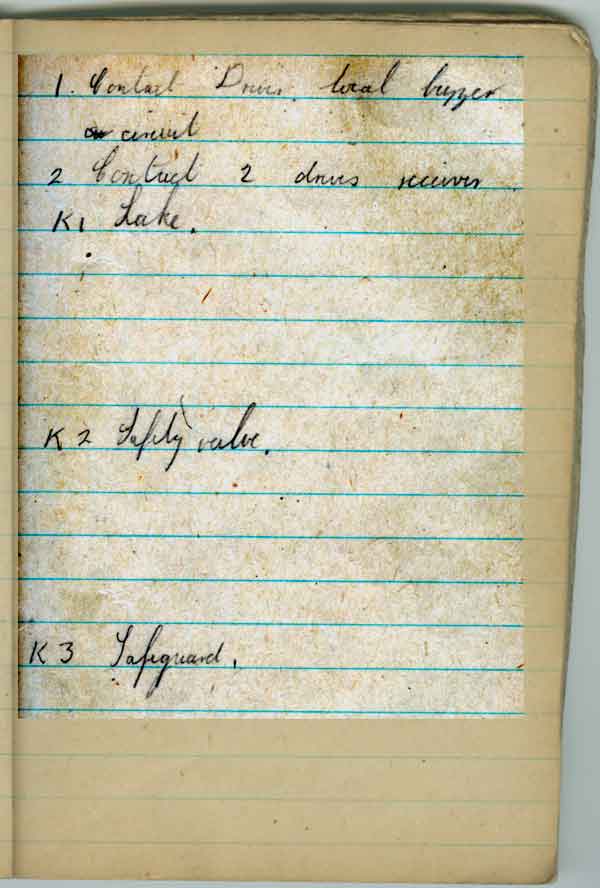 1. Contact Drives. local buzzer
circuit
2 Contact 2 drives receiver.
K1 Lake.
K2 Safety valve.
K3 Safeguard.